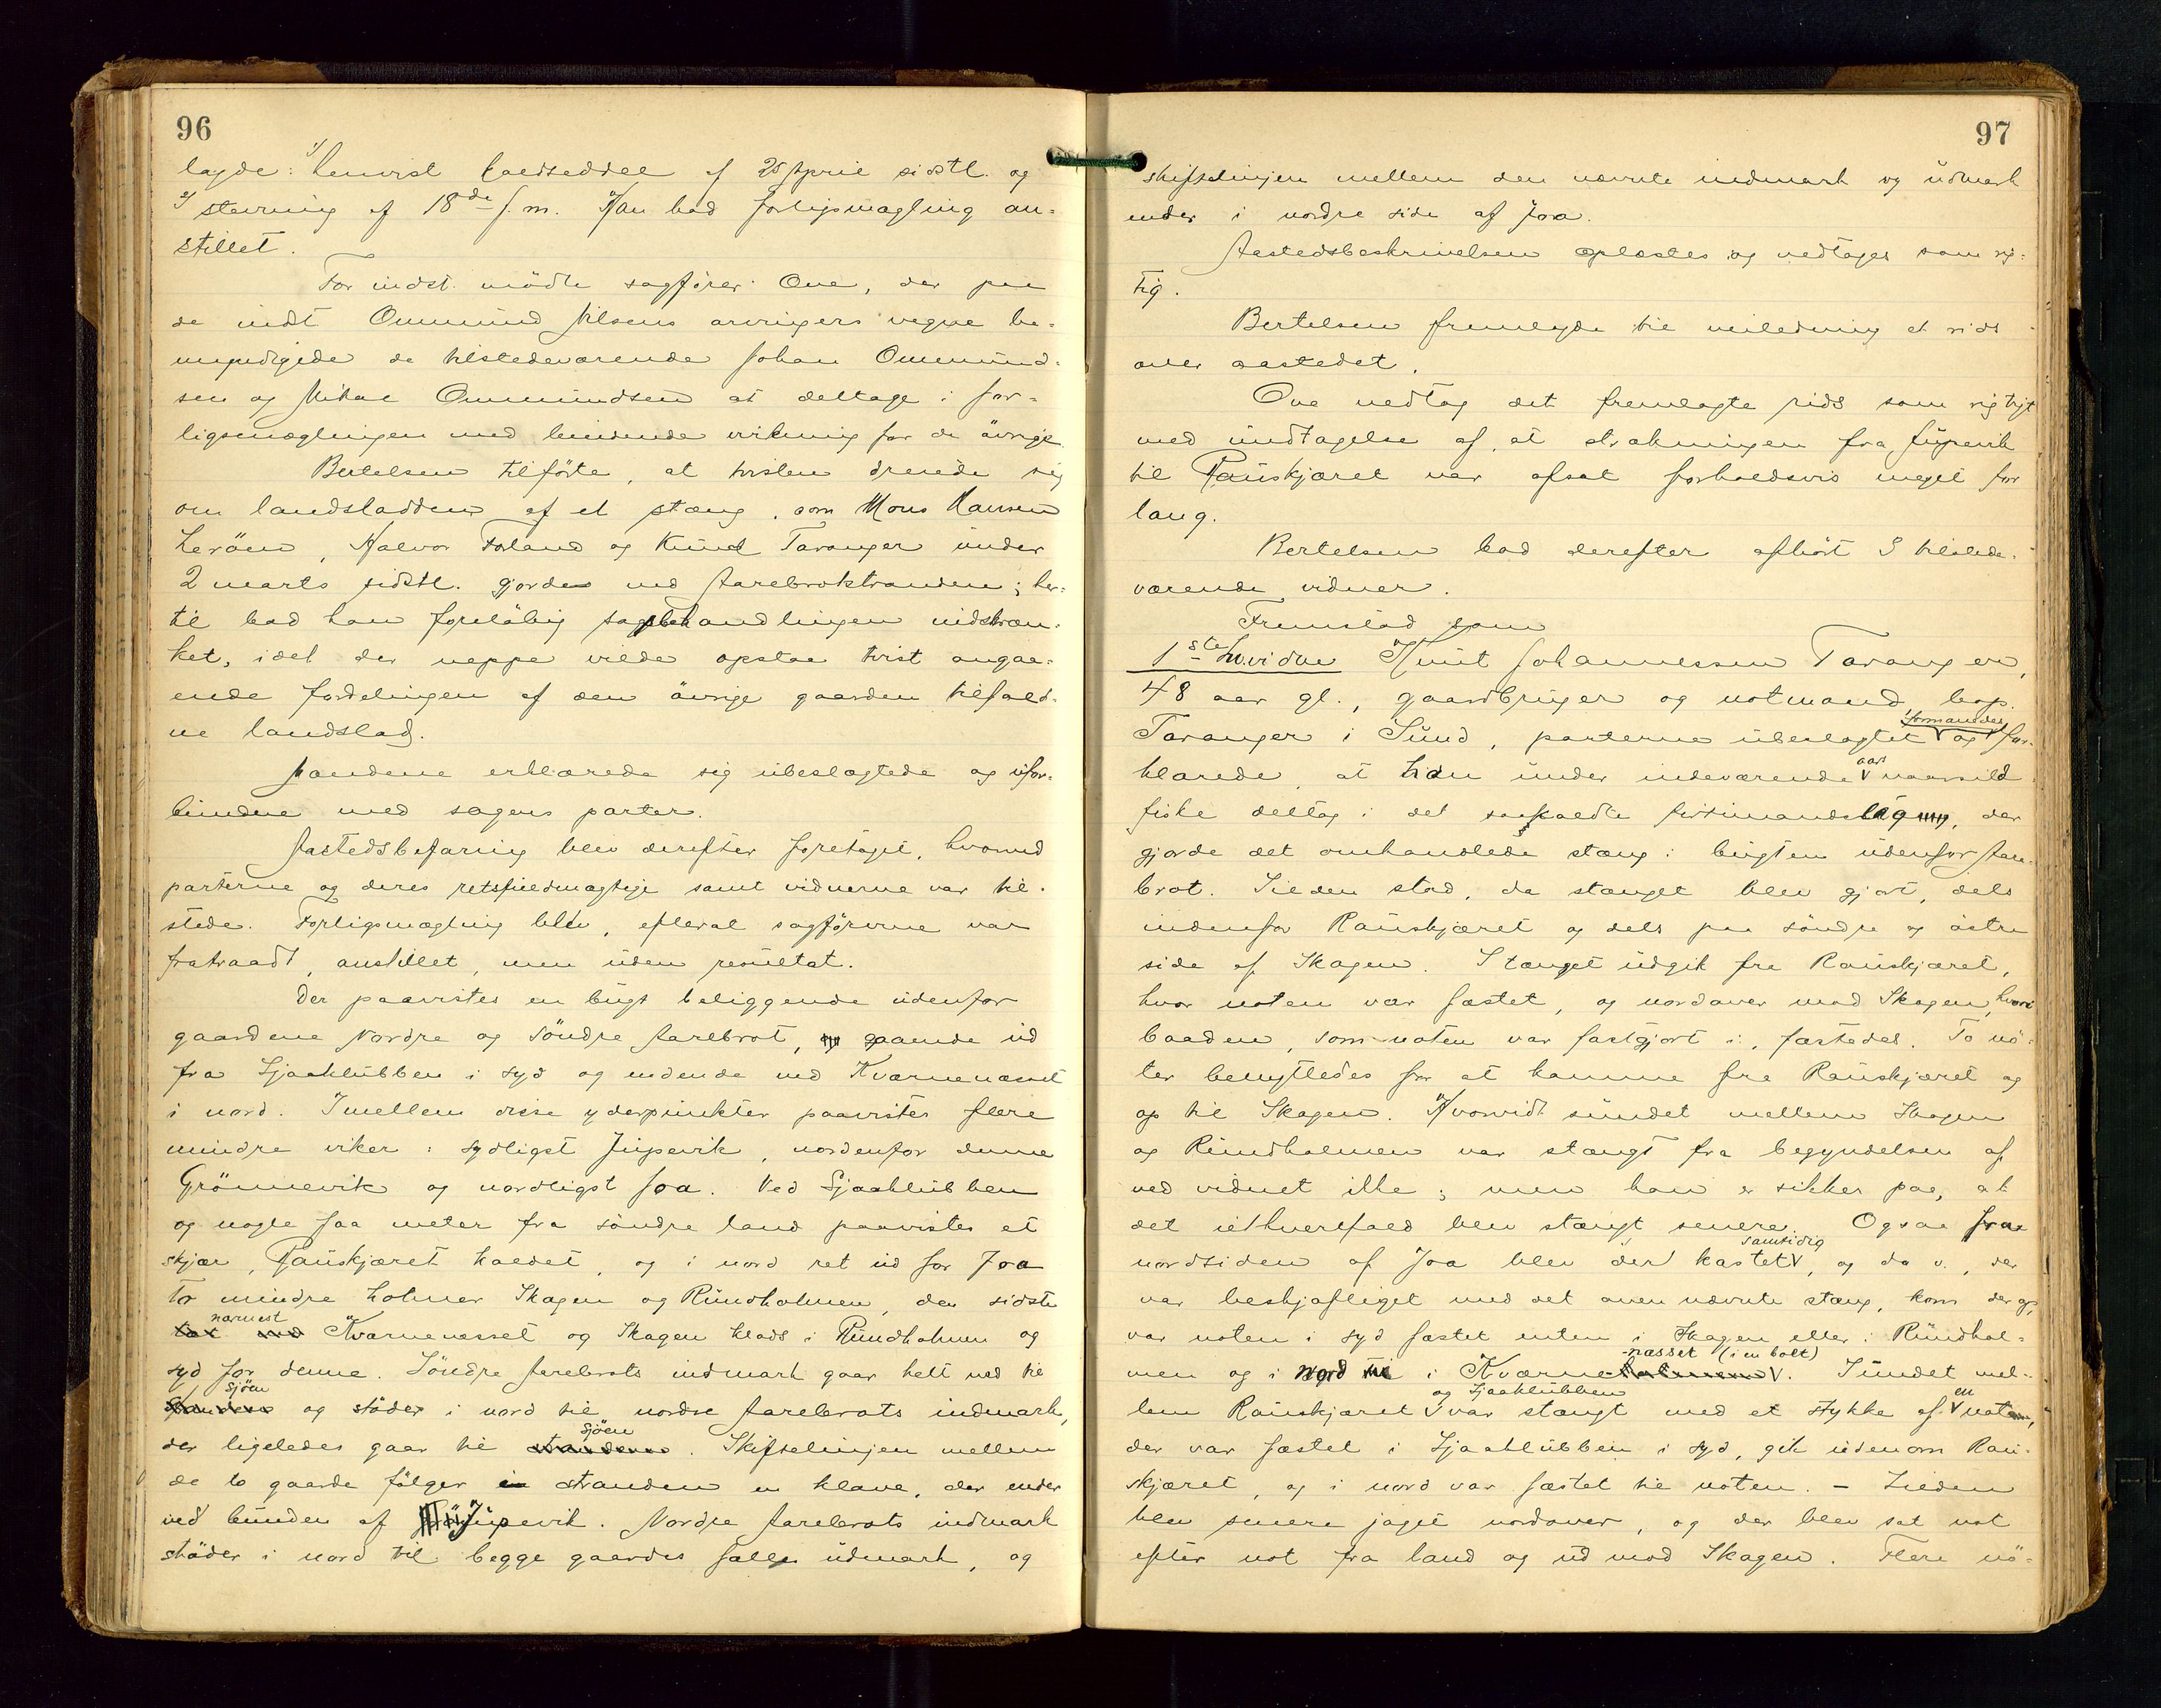 96
lagde: 1) henvist kaldseddel af 25 April sidstl. og
2) stevning af 18de f. m. Han bad forligsmægling an-
stillet.
For indst. mödte sagförer Ove, der paa
de indst Ommund Nilsens arvingers vegne be-
myndigede de tilstedeværende Johan Ommund-
sen og Mikal Ommundsen at deltage i for-
ligsmæglingen med bindende virkning for de övrige.
Bertelsen tilförte, at tvisten dreiede sig
om landsladden af et stæng, som Mons Hansen
Leröen, Halvor Forland og Knud Taranger under
2 marts sidstl. gjorde ved Aarebrotstranden; her-
til bad han foreløbig sagsbehandlingen indskræn-
ket, idet der neppe vilde opstaa tvist angaa-
ende fordelingen af den övrige gaarden tilfald-
ne landslod.
Mændene erklærede sig ubeslægtede og ufor-
bundne med sagens parter.
Aastedsbefaring blev derefter foretaget, hvorved
parterne og deres retsfuldmægtige samt vidnerne var til-
stede. Forligsmægling blev, efterat sagförerne var
fratraadt, anstillet, men uden resultat.
Der paavistes en bugt beliggende udenfor
gaardene Nordre og Söndre Aarebrot, gaaende ud
fra Sjaaklubben i syd og endende ved Kværnenæsset
i nord. Imellem disse yderpunkter paavistes flere
mindre viker: sydligst Jupevik, nordenfor denne
Grönnevik og nordligst Joa. Ved Sjaaklubben
og nogle faa meter fra söndre land paavistes et
skjær, Rauskjæret kaldet, og i nord ret ud for Joa
to mindre holmer Skagen og Rundholmen, den sidste
nærmest Kværnenesset og Skagen klods i Rundholmen og
syd for denne. Söndre Aarebrots indmark gaar helt ned til
sjöen og stöder i nord til nordre Aarebrots indmark,
der ligeledes gaar til sjöen. Skifselinjen mellem
de to gaarde fölger stranden en kleve, der ender
ved bunden af Jupevik. Nordre Aarebrots indmark
stöder i nord til begge gaardes fælles udmark, og
97
skifselinjen mellem den nævnte indmark og udmark
ender i nordre side af Joa.
Aastedsbeskrivelsen oplæstes og vedtoges som rig-
tig.
Bertelsen fremlagde til veiledning et rids
over aastedet.
Ove vedtog det fremlagte rids som rigtigt
med undtagelse af, at strækningen fra Jupevik
til Rauskjæret var afsat forholdsvis meget for
lang.
Bertelsen bad derefter afhört 3 tilstede-
værende vidner.
Fremstod som
1ste hv. vidne Knut Johannessen Taranger,
48 aar gl., gaardbruger og notmand, bop.
Taranger i Sund, parterne ubeslægtet formanedes og for-
klarede, at han under indeværende aars vaarsild-
fiske deltog i det saakaldte lag, der
gjorde det omhandlede stæng i bugten udenfor Aare-
brot. Silden stod, da stænget blev gjort, dels
indenfor Rauskjæret og dels paa söndre og östre
side af Skagen. Stænget udgik fra Rauskjæret,
hvor noten var fæstet, og nordover mod Skagen, hvor
baaden, som noten var fastgjort i, fæstedes. To nö-
ter benyttedes for at komme fra Rauskjæret og
op til Skagen. Hvorvidt sundet mellem Skagen
og Rundholmen var stængt fra begyndelsen af
ved vidnet ikke; men han er sikker paa, at
det ialtfald blev stængt senere. Ogsaa fra
nordsiden af Joa blev der kastet samtidig, og da v., der
var beskjæftiget med det oven nævnte stæng, kom derop,
var noten i syd fæstet enten i Skagen eller i Rundhol-
men og i nord i Kværnenæsset (i en bolt). Sundet mel-
lem Rauskjæret og Sjaaklubben var stængt med et stykke af en not,
der var fæstet i Sjaaklubben i syd, gik udenom Rau-
skjæret, og i nord var fæstet til noten. – Silden
blev senere jaget nordover, og der blev sat not
efter not fra land og ud mod Skagen. Flere nö-